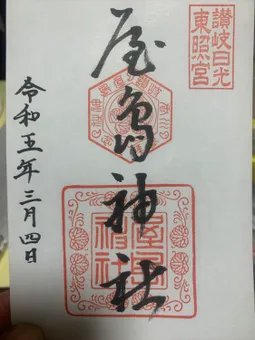 讃岐日光
東照宮
屋島神社
屋島
神社
令和五年三月四日